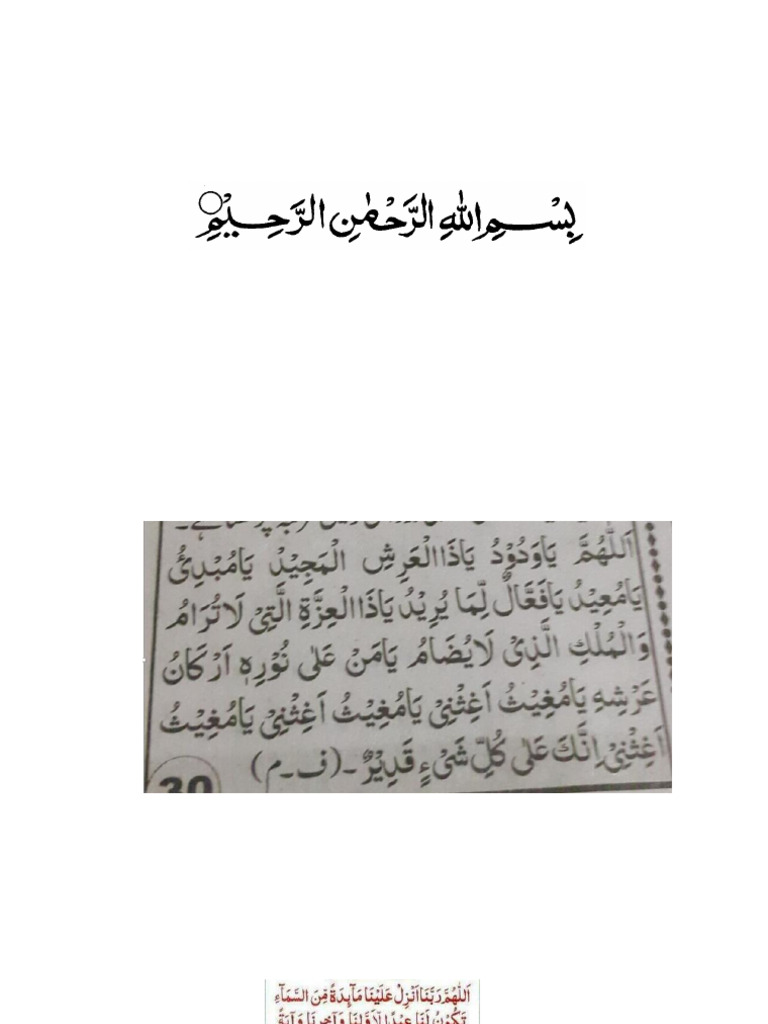 بِسْمِ اللهِ الرَّحْمٰنِ الرَّحِيْمِ
اَللّٰهُمَّ يَاوَدُوْدُ يَاذَاالْعَرِشِ الْمَجِيْدُ يَامُبْدِئُ
يَامُعِيْدُ يَافَعَّالٌ لِّمَا يُرِيْدُ يَاذَاالْعِزَّةِ الَّتِىْ لَاتُرَامُ
وَالْمُلْكِ الَّذِىْ لَايُضَامُ يَامَنْ عَلٰى نُوْرِهٖ اَرْكَانُ
عَرْشِهٖ يَامُغِيْثُ اَغِثْنِىْ يَامُغِيْثُ اَغِثْنِىْ يَامُغِيْثُ
اَغِثْنِىْ اِنَّكَ عَلٰى كُلِّ شَىْءٍ قَدِيْرٌ۔ (ف۔م)
30
اَللّٰهُمَّ رَبَّنَا اَنْزِلْ عَلَيْنَا مَآىِٕدَةً مِّنَ السَّمَآءِ
تَكُوْنُ لَنَا عِيْدًا لِّاَوَّلِنَا وَاٰخِرِنَا وَاٰيَةً